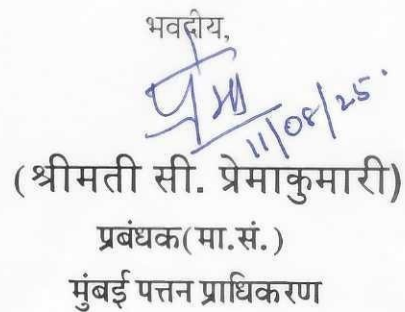 भवदीय,
प्रेमा
11/08/25
(श्रीमती सी. प्रेमाकुमारी)
प्रबंधक(मा.सं.)
मुंबई पत्तन प्राधिकरण